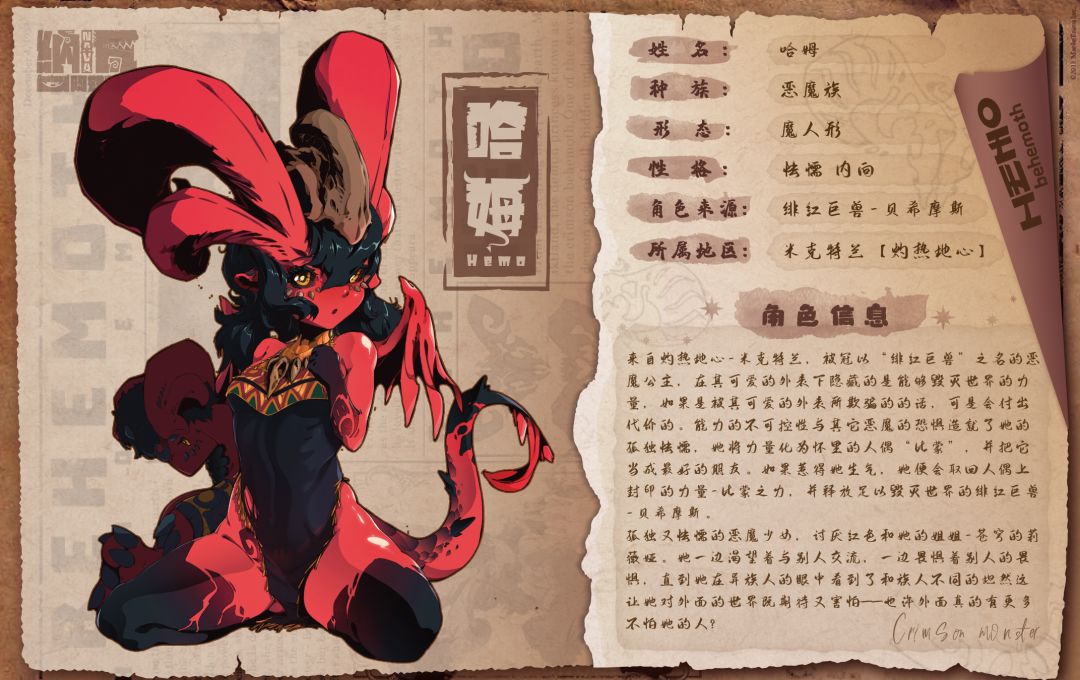 哈姆
Hemo
姓 名: 哈姆
种 族: 恶魔族
形 态: 魔人形
性 格: 怯懦 内向
角色来源: 绯红巨兽-贝希摩斯
所属地区: 米克特兰【灼热地心】
HEMO
behemoth
角色信息
来自灼热地心-米克特兰,被冠以“绯红巨兽”之名的恶
魔公主,在其可爱的外表下隐藏的是能够毁灭世界的力
量,如果是被其可爱的外表所欺骗的的话,可是会付出
代价的。能力的不可控性与其它恶魔的恐惧造就了她的
孤独怯懦,她将力量化为怀里的人偶“比蒙”,并把它
当成最好的朋友。如果惹得她生气,她便会取回人偶上
封印的力量-比蒙之力,并释放足以毁灭世界的绯红巨兽
-贝希摩斯。
孤独又怯懦的恶魔少女,讨厌红色和她的姐姐-苍穹的莉
薇娅。她一边渴望着与别人交流,一边畏惧着别人的畏
惧,直到她在异族人的眼中看到了和族人不同的坦然这
让她对外面的世界既期待又害怕——也许外面真的有更多
不怕她的人?
Crimson monster